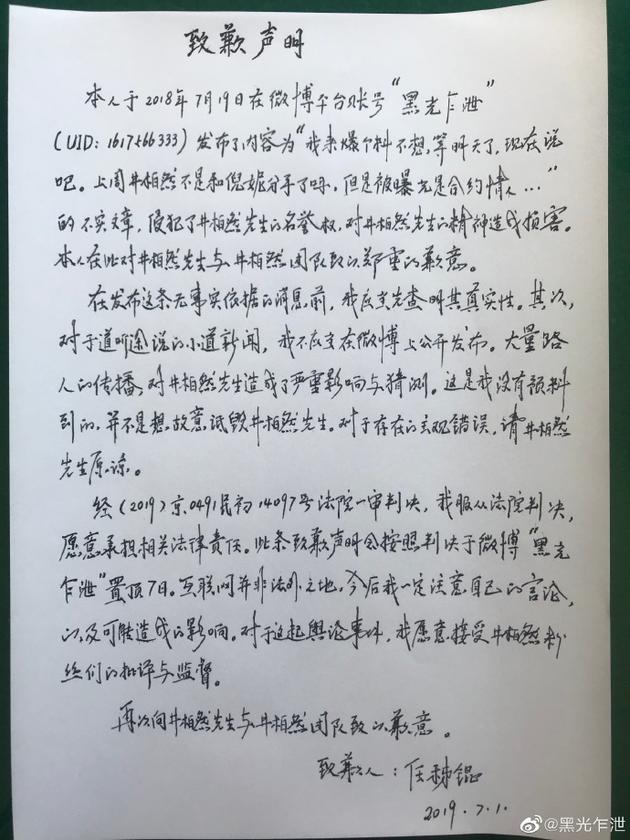 致歉声明
本人于2018年7月19日在微博平台账号“黑光乍泄”
(UID：1617566333)发布了内容为“我来爆个料不想等明天了，现在说
吧。上周井柏然不是和倪妮分手了吗，但是被曝光是合约情人...”
的不实文章，侵犯了井柏然先生的名誉权，对井柏然先生的精神造成损害。
本人在此对井柏然先生与井柏然团队致以郑重的歉意。
在发布这条无事实依据的消息前，我应当先查明其真实性。其次，
对于道听途说的小道新闻，我不应当在微博上公开发布。大量路
人的传播，对井柏然先生造成了严重影响与猜测。这是我没有预料
到的，并不是想故意诋毁井柏然先生。对于存在的主观错误，请井柏然
先生原谅。
经(2019)京0491民初14097号法院一审判决，我服从法院判决，
愿意承担相关法律责任。此条致歉声明会按照判决于微博“黑光
乍泄”置顶7日。互联网并非法外之地，今后我一定注意自己的言论，
以及可能造成的影响。对于这起舆论事件，我愿意接受井柏然粉
丝们的批评与监督。
再次向井柏然先生与井柏然团队致以歉意。
致歉人：任 锟
2019.7.1.
@黑光乍泄